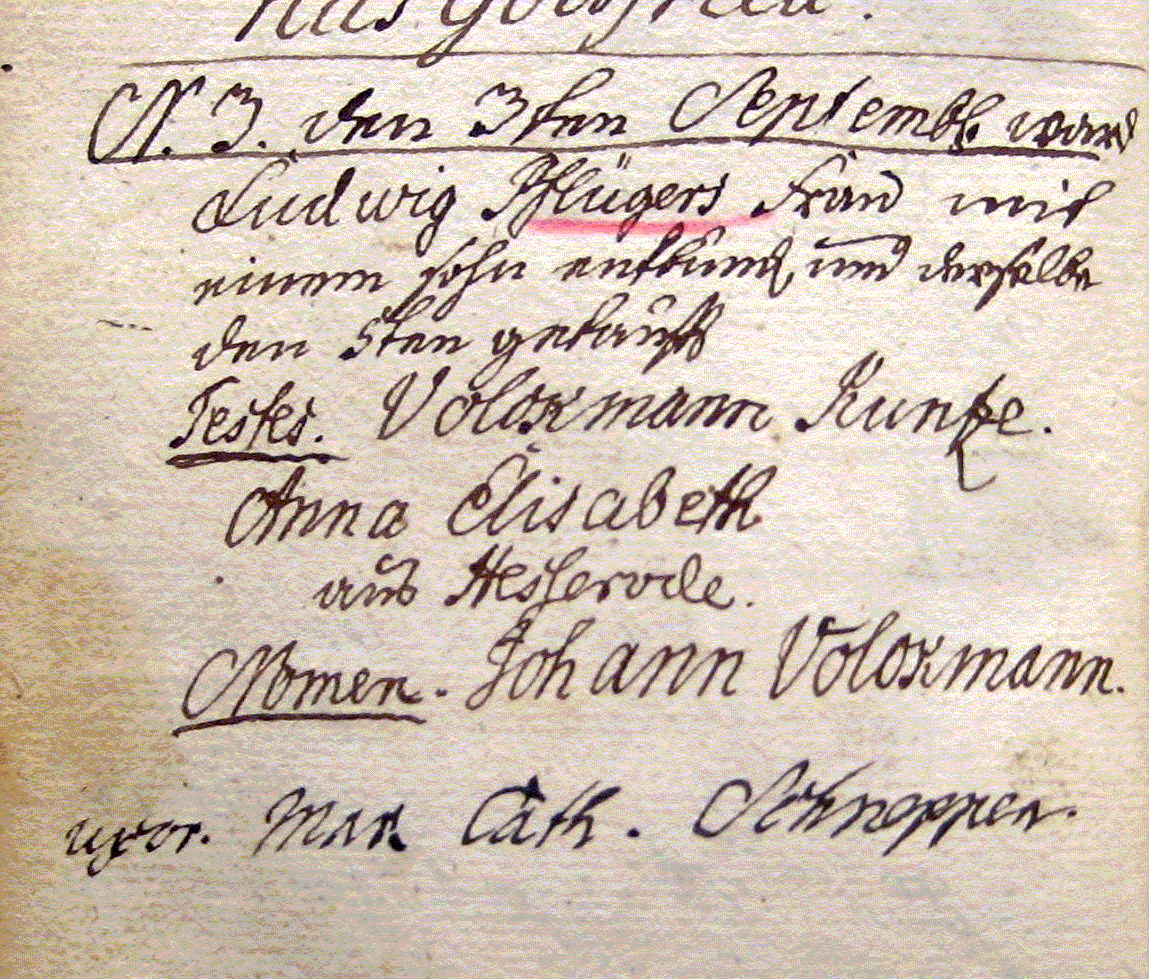 N. 3. den 3ten Septembr. ward
Ludwig Pflügers Frau mit
einem sohn entbund. und derselbe
den 5ten getauft
Testes. Volckmann Kuntze.
Anna Elisabeth
aus Hesserode.
Nomen. Johann Volckmann.
uxor. Mar. Cath. Schneppen.